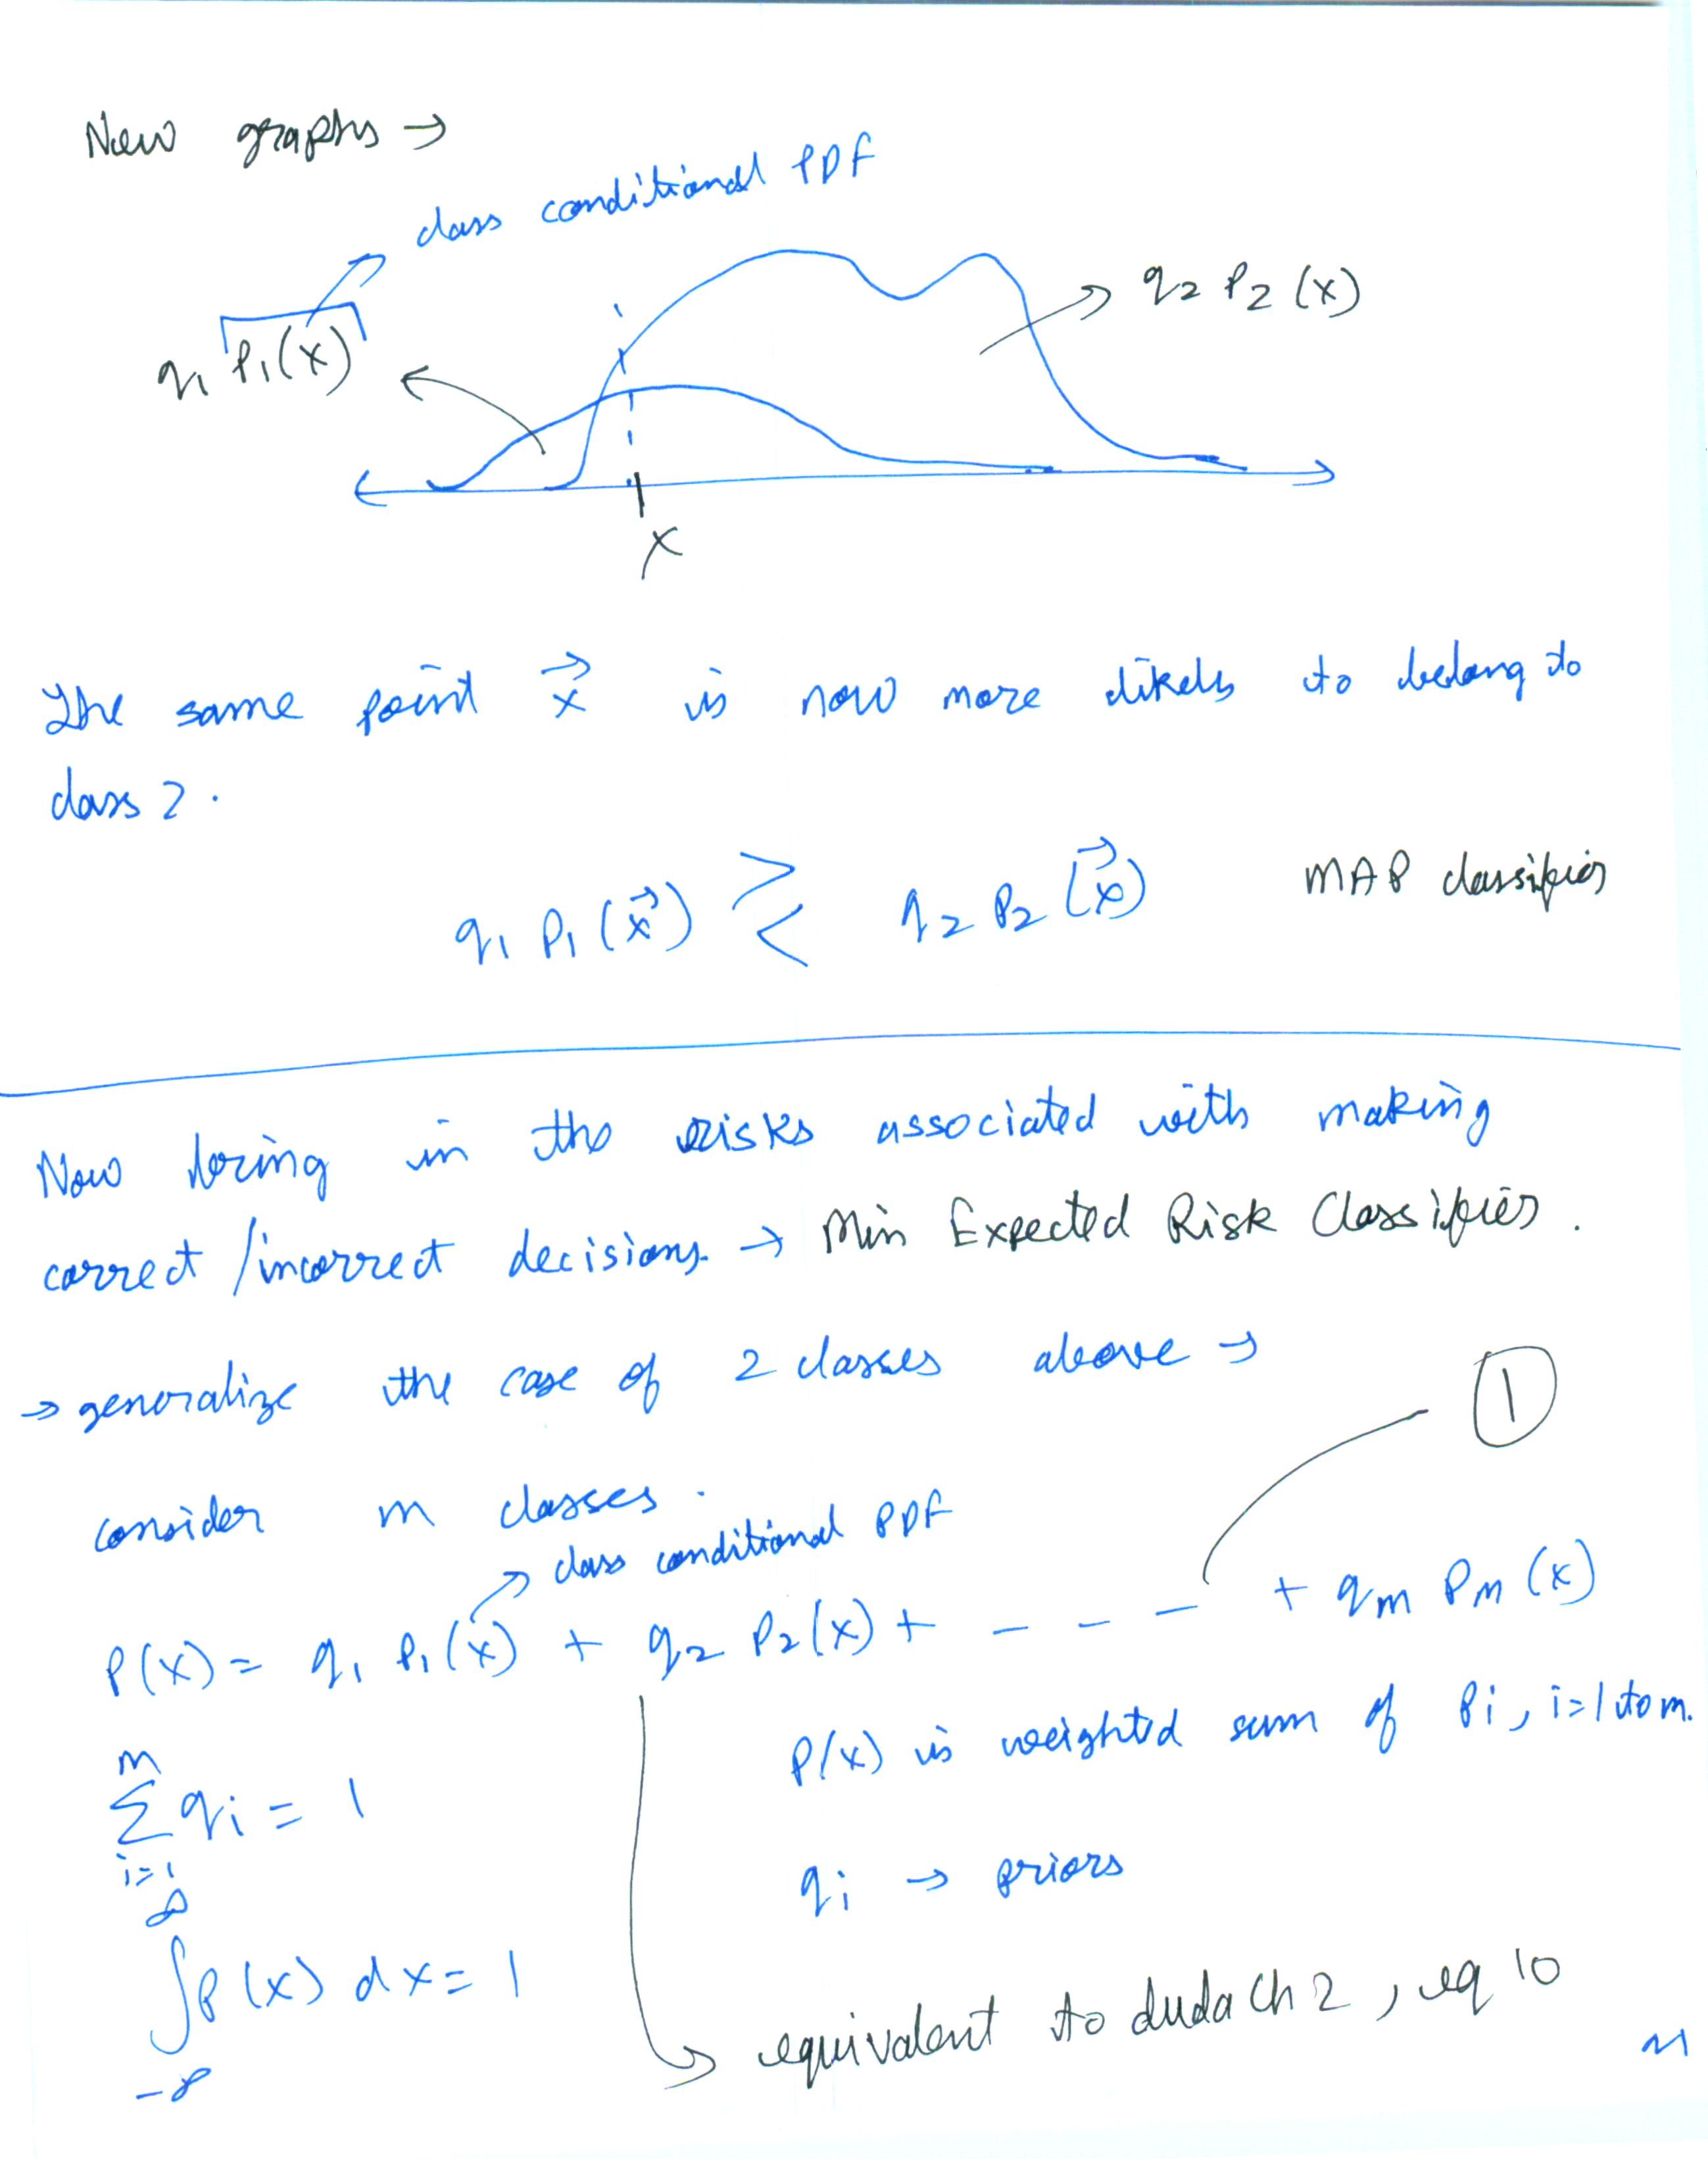 New graphs →
class conditional PDF
q1 P1(x)
q2 P2(x)
x
The same point x⃗ is now more likely to belong to
class 2.
q1 P1(x⃗) ≷ q2 P2(x⃗) MAP classifier
Now bring in the risks associated with making
correct/incorrect decisions. → Min Expected Risk Classifier.
→ generalize the case of 2 classes above →
1
consider m classes.
class conditional PDF
P(x) = q1 P1(x) + q2 P2(x) + - - - + qm Pm(x)
P(x) is weighted sum of Pi, i=1 to m.
m
Σ qi = 1
i=1
qi → priors
∞
∫P(x) dx = 1
-∞
equivalent to duda Ch 2, eq 10